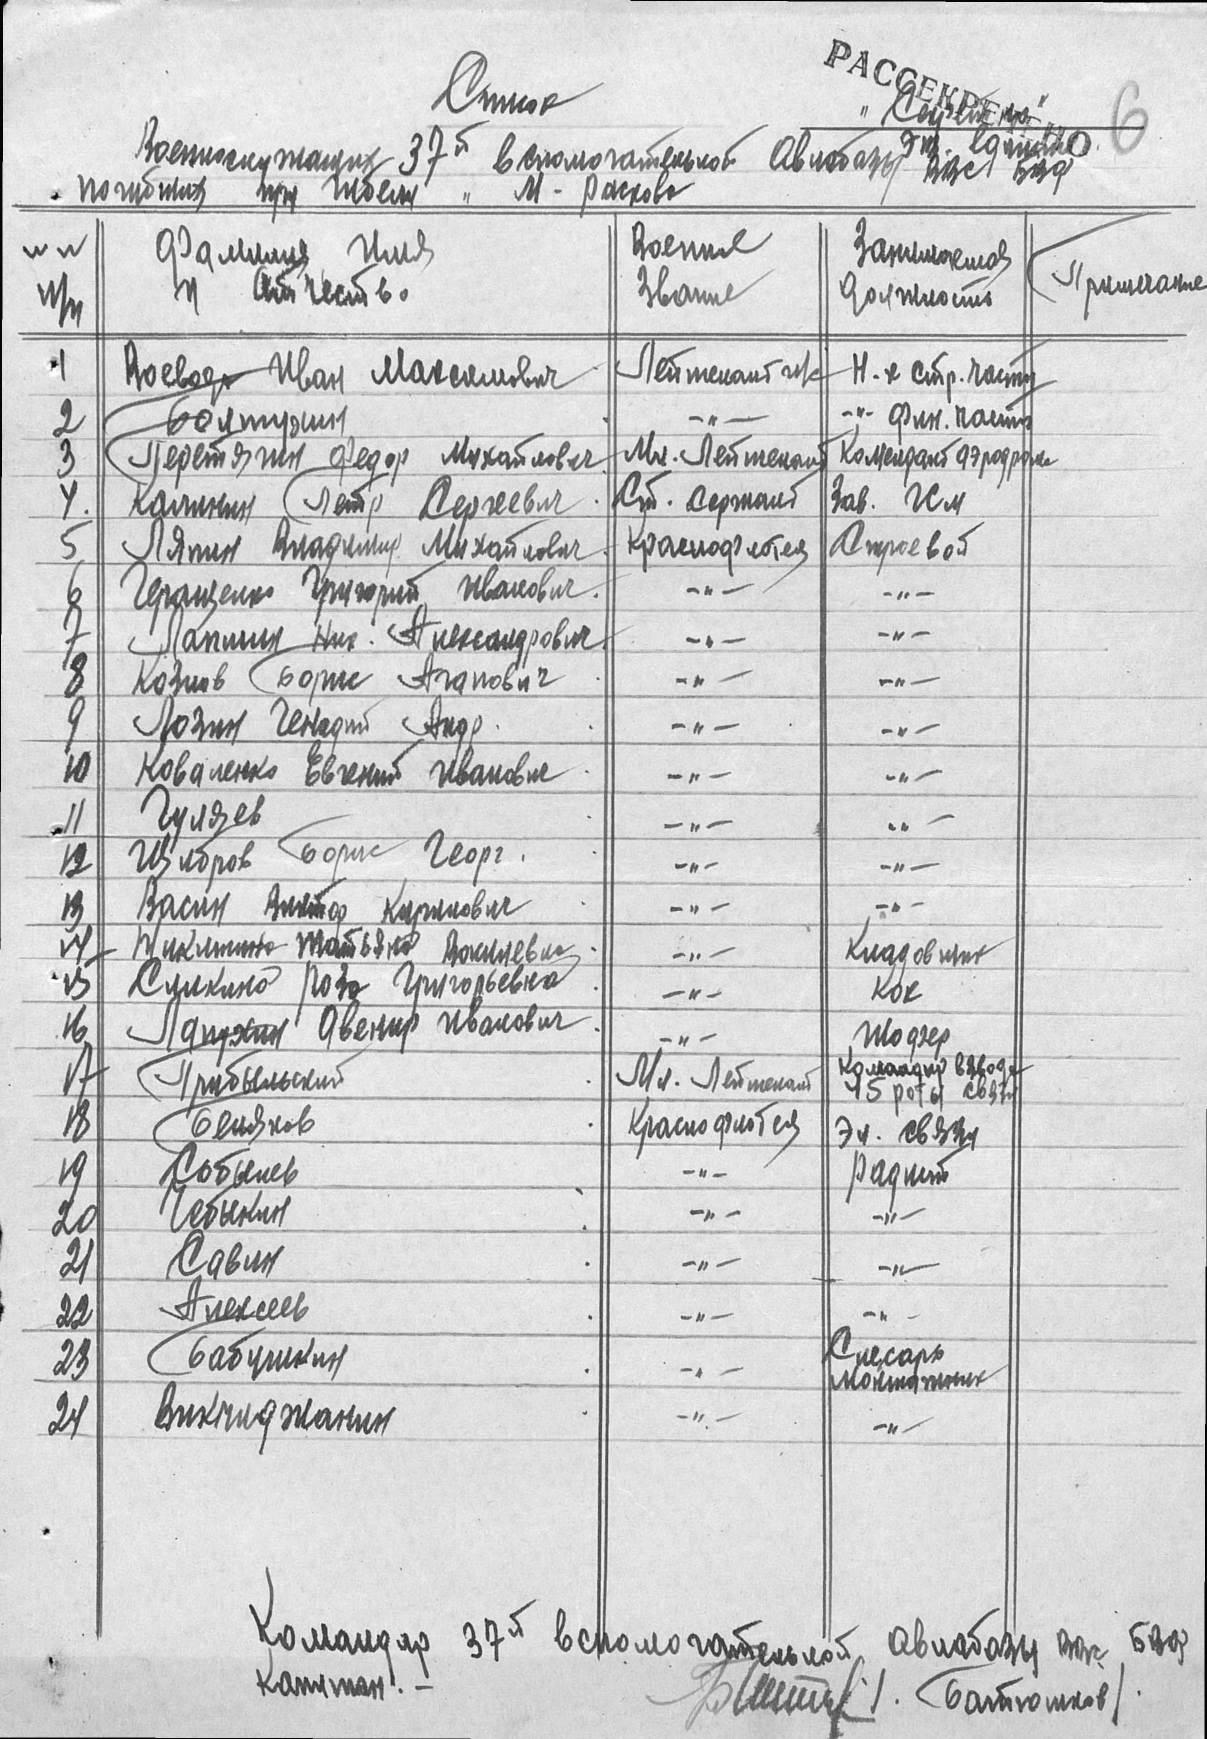 РАССЕКРЕЧЕНО
6
Список
"Секретно"
Экз. единств.
Военнослужащих 37й вспомогательной Авиабазы ВВС БВФ
погибших при гибели " М-Раскова
№ № Фамилия Имя Военное Занимаемая Примечание
п/п и Отчество Звание должность
1 Воевода Иван Максимович Лейтенант и/с Н-к стр. части
2 Болтунин -"- -"- фин. части
3 Перетягин Федор Михайлович Мл. Лейтенант Комендант аэродрома
4. Калинин Петр Сергеевич Ст. Сержант Зав.
5 Ляпин Владимир Михайлович Краснофлотец Строевой
6 Геращенко Григорий Иванович -"- -"-
7 Лапшин Ник. Александрович -"- -"-
8 Козлов Борис Агапович -"- -"-
9 Лозин Генадий Андр. -"- -"-
10 Коваленко Евгений Иванович -"- -"-
11 Гуляев -"- -"-
12 Борис Георг. -"- -"-
13 Васин Виктор Кирилович -"- -"-
14 Татьяна Васильевна -"- Кладовщик
15 Роза Григорьевна -"- Кок
16 Авенир Иванович -"- Шофер
17 Прибыльский Мл. Лейтенант Командир взвода
15 роты связи
18 Беляков Краснофлотец Эл. связи
19 Собылев -"- Радист
20 Чебыкин -"- -"-
21 Савин -"- -"-
22 Алексеев -"- -"-
23 Бабушкин -"- Слесарь
монтажник
24 -"- -"-
Командир 37й вспомогательной авиабазы ВВС БВФ
Капитан. - /. Батюшков/.